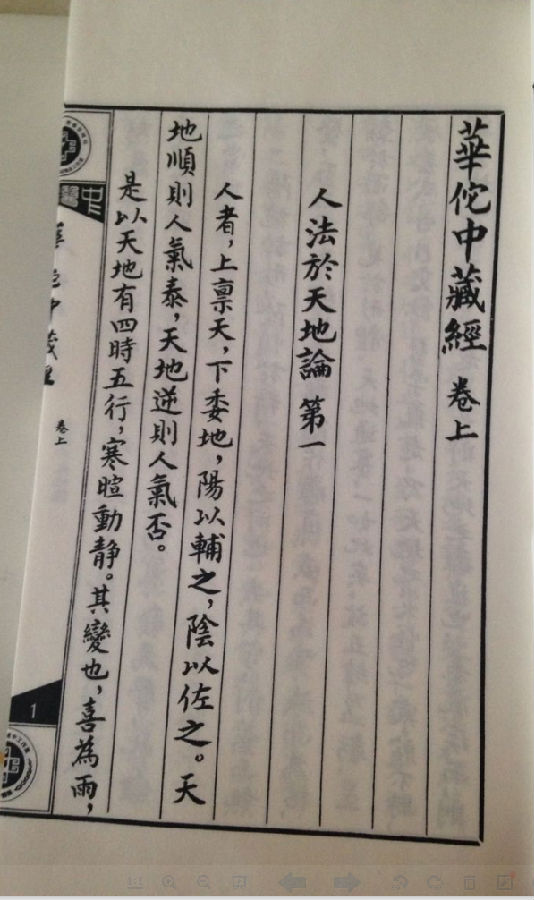 華佗中藏經 卷上
人法於天地論 第一
人者，上禀天，下委地，陽以輔之，陰以佐之。天
地順則人氣泰，天地逆則人氣否。
是以天地有四時五行，寒暄動靜。其變也，喜為雨，
中醫
華佗中藏經
卷上
1